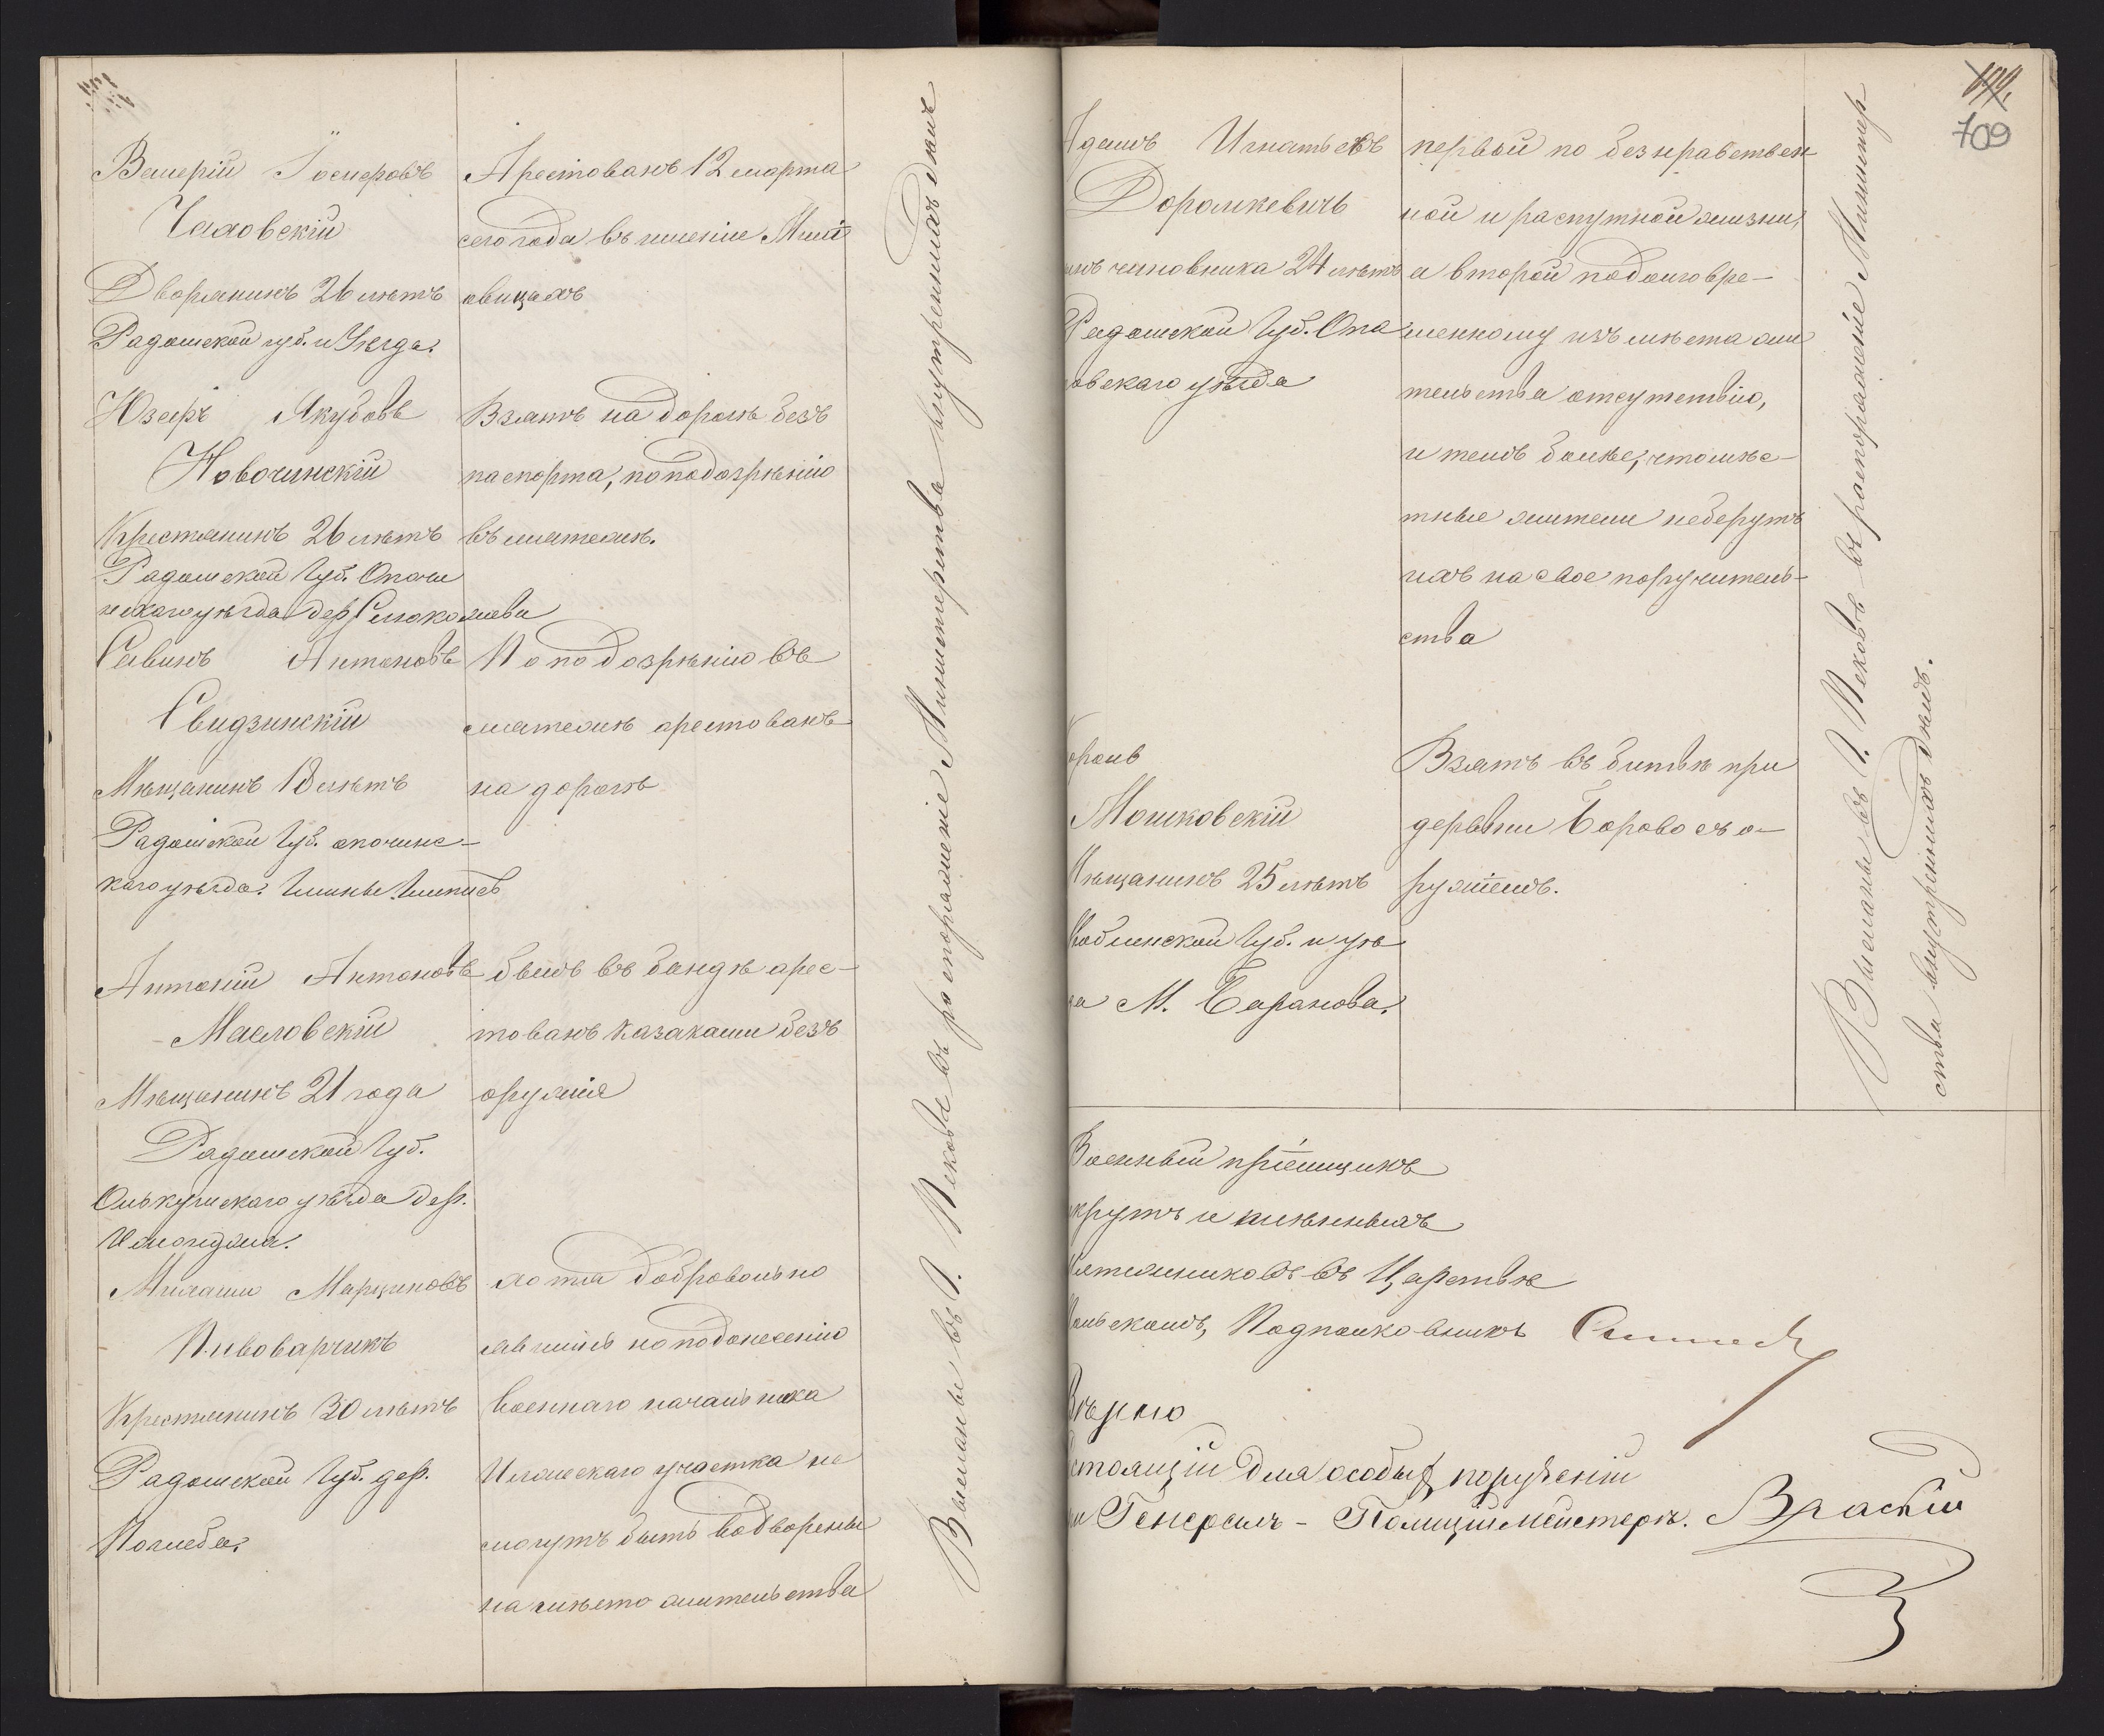 Валерій Іосифовъ
Чаховскій
Дворянинъ 26 лѣтъ
Радомской губ. и Уѣзда.
Арестованъ 12 марта
сего года въ имѣніи
Юзефъ Якубовъ
Новочинскій
Крестянинъ 26 лѣтъ
Радомской Губ. Опочи
нскаго уѣзда дер.
Взятъ на дорогѣ безъ
паспорта, по подозрѣнію
въ мятежѣ.
Савинъ Антоновъ
Свидзинскій
Мѣщанинъ 18 лѣтъ
Радомской Губ. опочинс-
каго уѣзда. Гмины
По подозрѣнію въ
мятежѣ арестованъ
на дорогѣ
Антоній Антоновъ
Масловскій
Мѣщанинъ 21 года
Радомской Губ.
Олькушскаго уѣзда дер.
былъ въ бандѣ арес-
тованъ казаками безъ
оружія
Марциновъ
Пивоварчикъ
Крестянинъ 30 лѣтъ
Радомской Губ. дер.
хотя добровольно
явились но по донесенію
военнаго начальника
участка не
могутъ быть водворены
на мѣсто жительства
Высланы въ Г. Псковъ въ распоряженіе Министерства внутреннихъ дѣлъ
709
Адамъ Игнатьевъ
Доралкевичъ
сынъ чиновника 24 лѣтъ
Радомской Губ. Опа
товскаго уѣзда
первый по безнравствен
ной и распутной жизни,
а второй по долговре-
менному изъ мѣста жи
тельства отсутствію,
и темъ болѣе, что мѣс-
тные жители не берутъ
ихъ на свое поручитель-
ства
Мошковскій
Мѣщанинъ 25 лѣтъ
Люблинской Губ. и уѣз
да М. Баранова.
Взятъ въ битвѣ при
деревни Борово съ о-
ружіемъ.
Высланы въ Г. Псковъ въ распоряженіе Министер
ства внутреннихъ дѣлъ.
Военный пріемщикъ
рекрутъ и плѣнныхъ
мятежниковъ въ Царствѣ
Польскомъ, Подполковникъ
Вѣрно
Состоящій для особыхъ порученій
при Генералъ-Полиціймейстерѣ.